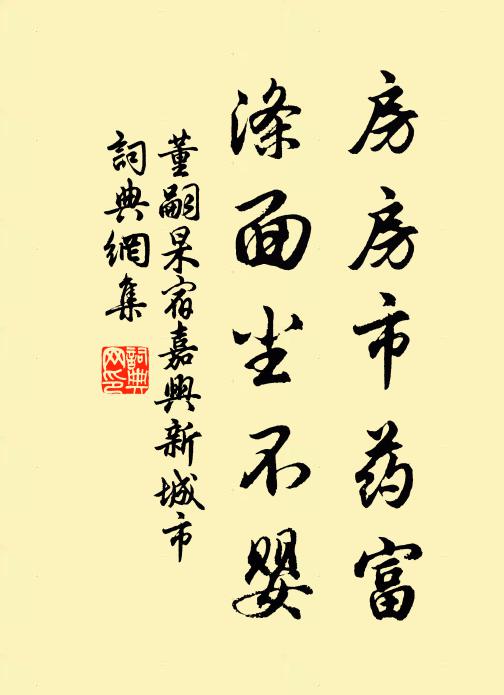 房房市药富
涤面尘不婴
董嗣杲宿嘉興新城市
詞典網集
詞典
网印